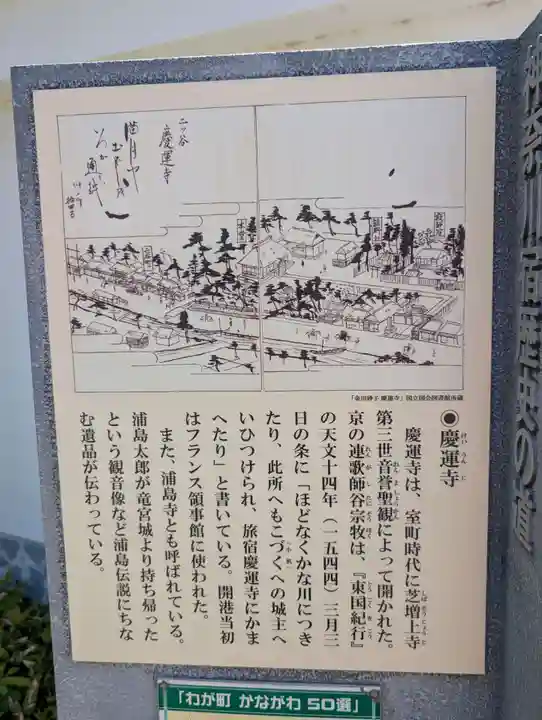 神奈川宿歴史の道
二ッ谷
慶運寺
「金川砂子 慶運寺」国立国会図書館所蔵
◉慶運寺
慶運寺は、室町時代に芝増上寺
第三世音誉聖観によって開かれた。
京の連歌師谷宗牧は、『東国紀行』
の天文十四年（一五四四）三月三
日の条に「ほどなくかな川につき
たり、此所へもこづくへの城主へ
いひつけられ、旅宿慶運寺にかま
へたり」と書いている。開港当初
はフランス領事館に使われた。
また、浦島寺とも呼ばれている。
浦島太郎が竜宮城より持ち帰った
という観音像など浦島伝説にちな
む遺品が伝わっている。
「わが町 かながわ 50選」